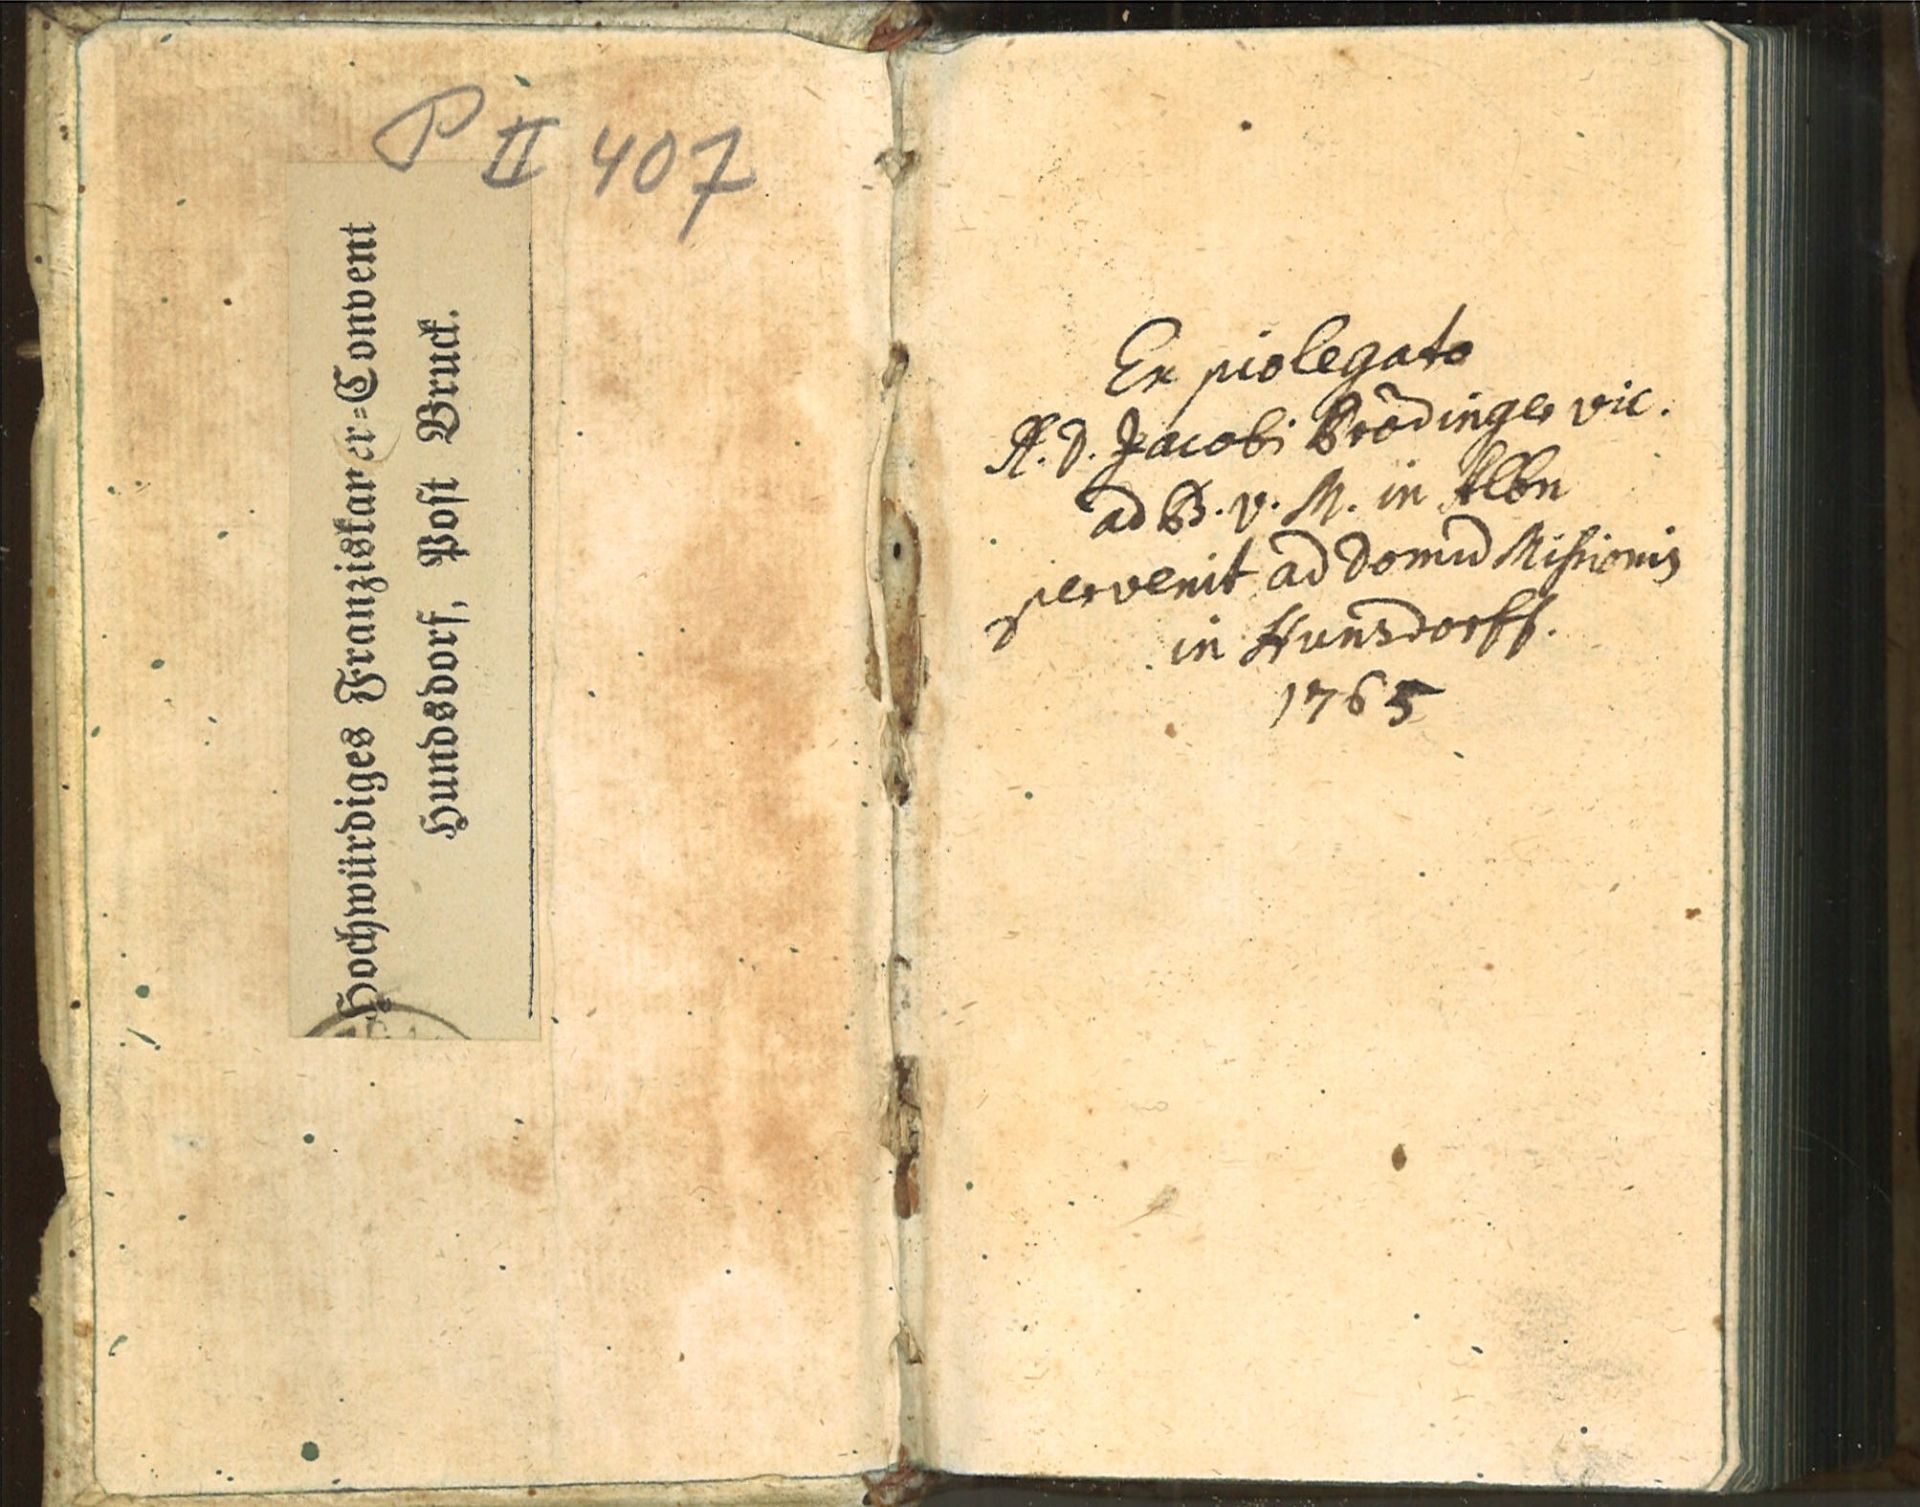 P II 407
Hochwürdiges Franziskaner=Convent
Hundsdorf, Post Bruck.
Ex pio legato
A. D. Jacobi Brödinger vic.
ad B. V. M. in Albn
pervenit ad domū Missionis
in Hunsdorff.
1765